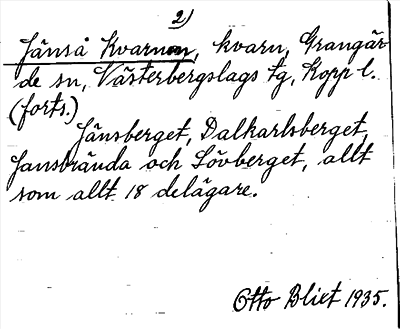 2)
Jänså Kvarnen, kvarn, Grangär-
de sn, Västerbergslags tg, Kopp l.
(forts.)
Jänsberget, Dalkarlsberget,
Jansbrända och Lövberget, allt
som allt 18 delägare.
Otto Blixt 1935.